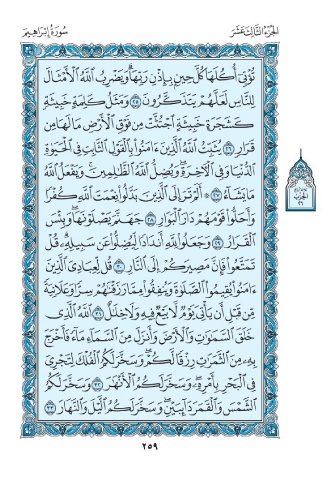 الجزء الثالث عشر
سورة إبراهيم
تُؤْتِي أُكُلَهَا كُلَّ حِينٍ بِإِذْنِ رَبِّهَا وَيَضْرِبُ اللَّهُ الْأَمْثَالَ
لِلنَّاسِ لَعَلَّهُمْ يَتَذَكَّرُونَ ٢٥ وَمَثَلُ كَلِمَةٍ خَبِيثَةٍ
كَشَجَرَةٍ خَبِيثَةٍ اجْتُثَّتْ مِنْ فَوْقِ الْأَرْضِ مَا لَهَا مِنْ
قَرَارٍ ٢٦ يُثَبِّتُ اللَّهُ الَّذِينَ ءَامَنُوا بِالْقَوْلِ الثَّابِتِ فِي الْحَيَوٰةِ
الدُّنْيَا وَفِي الْآخِرَةِ وَيُضِلُّ اللَّهُ الظَّٰلِمِينَ وَيَفْعَلُ اللَّهُ
مَا يَشَاءُ ٢٧ أَلَمْ تَرَ إِلَى الَّذِينَ بَدَّلُوا نِعْمَتَ اللَّهِ كُفْرًا
وَأَحَلُّوا قَوْمَهُمْ دَارَ الْبَوَارِ ٢٨ جَهَنَّمَ يَصْلَوْنَهَا وَبِئْسَ
الْقَرَارُ ٢٩ وَجَعَلُوا لِلَّهِ أَندَادًا لِيُضِلُّوا عَن سَبِيلِهِ قُلْ
تَمَتَّعُوا فَإِنَّ مَصِيرَكُمْ إِلَى النَّارِ ٣٠ قُل لِعِبَادِيَ الَّذِينَ
ءَامَنُوا يُقِيمُوا الصَّلَوٰةَ وَيُنفِقُوا مِمَّا رَزَقْنَٰهُمْ سِرًّا وَعَلَانِيَةً
مِن قَبْلِ أَن يَأْتِيَ يَوْمٌ لَا بَيْعٌ فِيهِ وَلَا خِلَٰلٌ ٣١ اللَّهُ الَّذِي
خَلَقَ السَّمَٰوَٰتِ وَالْأَرْضَ وَأَنزَلَ مِنَ السَّمَاءِ مَاءً فَأَخْرَجَ
بِهِ مِنَ الثَّمَرَٰتِ رِزْقًا لَكُمْ وَسَخَّرَ لَكُمُ الْفُلْكَ لِتَجْرِيَ
فِي الْبَحْرِ بِأَمْرِهِ وَسَخَّرَ لَكُمُ الْأَنْهَٰرَ ٣٢ وَسَخَّرَ لَكُمُ
الشَّمْسَ وَالْقَمَرَ دَائِبَيْنِ وَسَخَّرَ لَكُمُ الَّيْلَ وَالنَّهَارَ ٣٣
٢٥٩